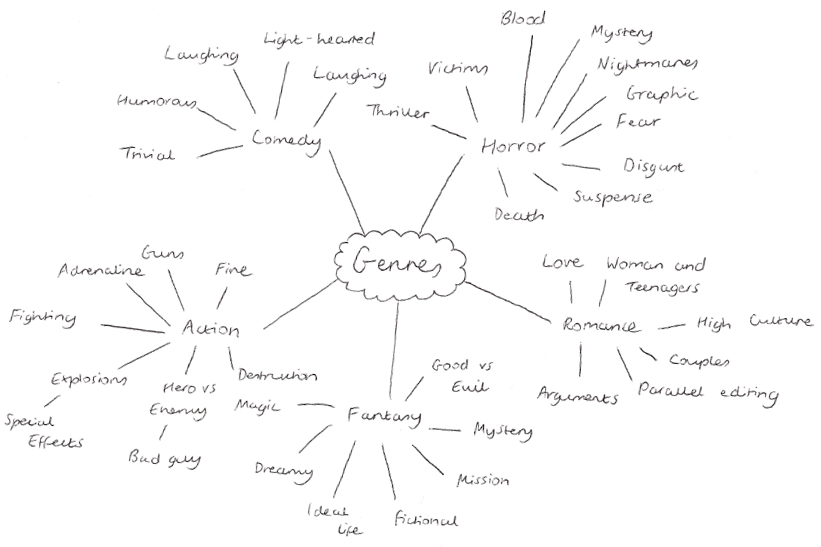 Genres
Comedy
Laughing
Light-hearted
Laughing
Humorous
Trivial
Horror
Blood
Mystery
Nightmares
Graphic
Fear
Disgust
Suspense
Death
Thriller
Victims
Romance
Love
Woman and
Teenagers
High Culture
Couples
Parallel editing
Arguments
Fantasy
Good vs
Evil
Mystery
Mission
Fictional
Ideal
life
Dreamy
Magic
Action
Fire
Guns
Adrenaline
Fighting
Explosions
Special
Effects
Hero vs
Enemy
Bad guy
Destruction